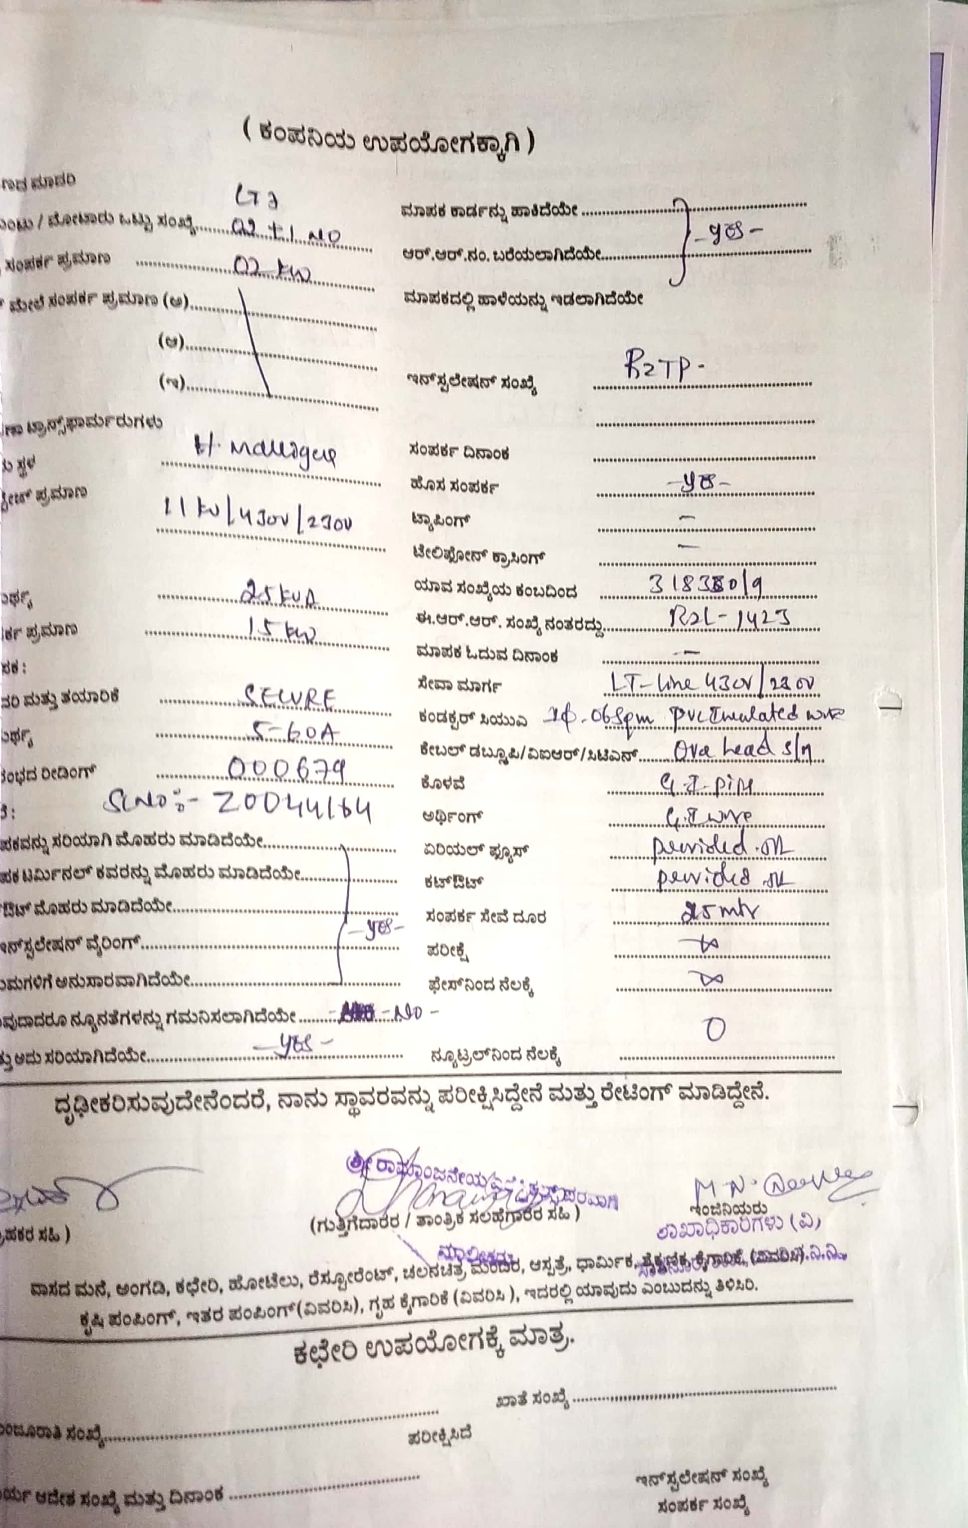 ( ಕಂಪನಿಯ ಉಪಯೋಗಕ್ಕಾಗಿ )
ಮಾದರಿ
LT3
/ ಮೋಟಾರು ಒಟ್ಟು ಸಂಖ್ಯೆ 02 + 1 NO
ಸಂಪರ್ಕ ಪ್ರಮಾಣ 02 KW
ಮೇಲೆ ಸಂಪರ್ಕ ಪ್ರಮಾಣ (ಅ)
(ಆ)
(ಇ)
ಟ್ರಾನ್ಸ್‌ಫಾರ್ಮರುಗಳು
ಸ್ಥಳ
ಪ್ರಮಾಣ
11 KV/430V/230V
25 KVA
ಪ್ರಮಾಣ 15 KW
ಮತ್ತು ತಯಾರಿಕೆ SECURE
5-60A
ರೀಡಿಂಗ್ 000679
Sl No:- 20044164
ಸರಿಯಾಗಿ ಮೊಹರು ಮಾಡಿದೆಯೇ
ಟರ್ಮಿನಲ್ ಕವರನ್ನು ಮೊಹರು ಮಾಡಿದೆಯೇ
ಮೊಹರು ಮಾಡಿದೆಯೇ
ಇನ್‌ಸ್ಟಲೇಷನ್ ವೈರಿಂಗ್ -yes-
ಅನುಸಾರವಾಗಿದೆಯೇ
ನ್ಯೂನತೆಗಳನ್ನು ಗಮನಿಸಲಾಗಿದೆಯೇ - NO -
ಅದು ಸರಿಯಾಗಿದೆಯೇ -yes-
ಮಾಪಕ ಕಾರ್ಡನ್ನು ಹಾಕಿದೆಯೇ
ಆರ್.ಆರ್.ನಂ. ಬರೆಯಲಾಗಿದೆಯೇ -yes-
ಮಾಪಕದಲ್ಲಿ ಹಾಳೆಯನ್ನು ಇಡಲಾಗಿದೆಯೇ
ಇನ್‌ಸ್ಟಲೇಷನ್ ಸಂಖ್ಯೆ
ಸಂಪರ್ಕ ದಿನಾಂಕ
ಹೊಸ ಸಂಪರ್ಕ -yes-
ಟ್ಯಾಪಿಂಗ್ -
ಟೇಲಿಫೋನ್ ಕ್ರಾಸಿಂಗ್ -
ಯಾವ ಸಂಖ್ಯೆಯ ಕಂಬದಿಂದ
ಈ.ಆರ್.ಆರ್. ಸಂಖ್ಯೆ ನಂತರದ್ದು R2L-1423
ಮಾಪಕ ಓದುವ ದಿನಾಂಕ -
ಸೇವಾ ಮಾರ್ಗ LT-Line 430V/230V
ಕಂಡಕ್ಟರ್ ಸಿಯುಎ
ಕೇಬಲ್ ಡಬ್ಲ್ಯೂಪಿ/ವಿಐಆರ್/ಸಿಟಿಎಸ್
ಕೊಳವೆ G.I. pipe
ಅರ್ಥಿಂಗ್ G.I wire
ಏರಿಯಲ್ ಫ್ಯೂಸ್
ಕಟ್‌ಔಟ್
ಸಂಪರ್ಕ ಸೇವೆ ದೂರ 25 mtr
ಪರೀಕ್ಷೆ ∞
ಫೇಸ್‌ನಿಂದ ನೆಲಕ್ಕೆ ∞
ನ್ಯೂಟ್ರಲ್‌ನಿಂದ ನೆಲಕ್ಕೆ 0
ದೃಢೀಕರಿಸುವುದೇನೆಂದರೆ, ನಾನು ಸ್ಥಾವರವನ್ನು ಪರೀಕ್ಷಿಸಿದ್ದೇನೆ ಮತ್ತು ರೇಟಿಂಗ್ ಮಾಡಿದ್ದೇನೆ.
ಸಹಿ )
(ಗುತ್ತಿಗೆದಾರರ / ತಾಂತ್ರಿಕ ಸಲಹೆಗಾರರ ಸಹಿ )
ಮಾಲೀಕರು
ಇಂಜಿನಿಯರು
ಶಾಖಾಧಿಕಾರಿಗಳು (ವಿ)
ವಾಸದ ಮನೆ, ಅಂಗಡಿ, ಕಛೇರಿ, ಹೋಟೆಲು, ರೆಸ್ಟೋರೆಂಟ್, ಚಲನಚಿತ್ರ ಮಂದಿರ, ಆಸ್ಪತ್ರೆ, ಧಾರ್ಮಿಕ, ಶೈಕ್ಷಣಿಕ, ಕೈಗಾರಿಕೆ, (ವಿವರಿಸಿ)
ಕೃಷಿ ಪಂಪಿಂಗ್, ಇತರ ಪಂಪಿಂಗ್(ವಿವರಿಸಿ), ಗೃಹ ಕೈಗಾರಿಕೆ (ವಿವರಿಸಿ ), ಇದರಲ್ಲಿ ಯಾವುದು ಎಂಬುದನ್ನು ತಿಳಿಸಿರಿ.
ಕಛೇರಿ ಉಪಯೋಗಕ್ಕೆ ಮಾತ್ರ.
ಖಾತೆ ಸಂಖ್ಯೆ
ಸಂಖ್ಯೆ
ಪರೀಕ್ಷಿಸಿದೆ
ಆದೇಶ ಸಂಖ್ಯೆ ಮತ್ತು ದಿನಾಂಕ
ಇನ್‌ಸ್ಟಲೇಷನ್ ಸಂಖ್ಯೆ
ಸಂಪರ್ಕ ಸಂಖ್ಯೆ